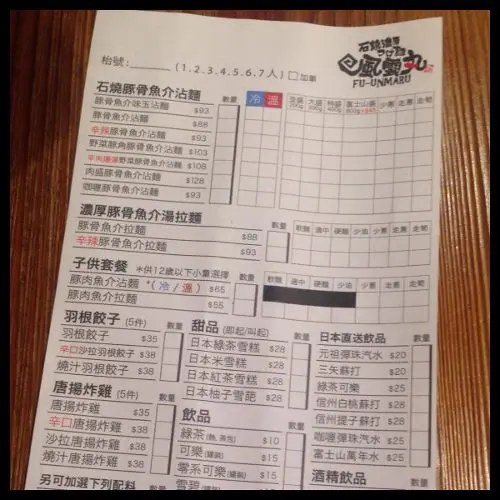 石燒濃厚
つけ麵
風雲丸
FU-UNMARU
枱號:______ (1.2.3.4.5.6.7人) □加單
石燒豚骨魚介沾麵 數量 冷 溫
豚骨魚介味玉沾麵 $93
豚骨魚介沾麵 $88
辛辣豚骨魚介沾麵 $93
野菜豚角豚骨魚介沾麵 $103
野菜豚骨魚介沾麵 $108
肉盛豚骨魚介沾麵 $128
咖喱豚骨魚介沾麵 $93
濃厚豚骨魚介湯拉麵 數量 軟麵 適中 硬麵 少油 少蔥 走蔥 走筍
豚骨魚介拉麵 $88
辛辣豚骨魚介拉麵 $93
子供套餐 *供12歲以下小童選擇 數量 軟麵 適中 硬麵 少油 少蔥 走蔥 走筍
豚肉魚介沾麵 *(冷/溫) $65
豚肉魚介拉麵 $55
羽根餃子 (5件) 數量
羽根餃子 $35
辛口沙拉羽根餃子 $38
燒汁羽根餃子 $38
唐揚炸雞 (5件) 數量
唐揚炸雞 $35
辛口唐揚炸雞 $38
沙拉唐揚炸雞 $38
燒汁唐揚炸雞 $38
另可加選下列配料
甜品 (即起/叫起) 數量
日本綠茶雪糕 $28
日本米雪糕 $28
日本紅茶雪糕 $28
日本柚子雪葩 $28
飲品 數量
綠茶 (熱, 茶包) $10
可樂 (罐裝) $15
零系可樂 (罐裝) $15
雪碧 (罐裝) $15
日本直送飲品 數量
元祖彈珠汽水 $20
三矢蘇打 $20
綠茶可樂 $25
信州白桃蘇打 $25
信州提子蘇打 $25
咖喱彈珠汽水 $25
富士山萬年水 $25
酒精飲品 數量